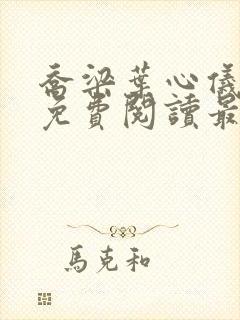 喬梁葉心儀
免費閱讀最
馬克和